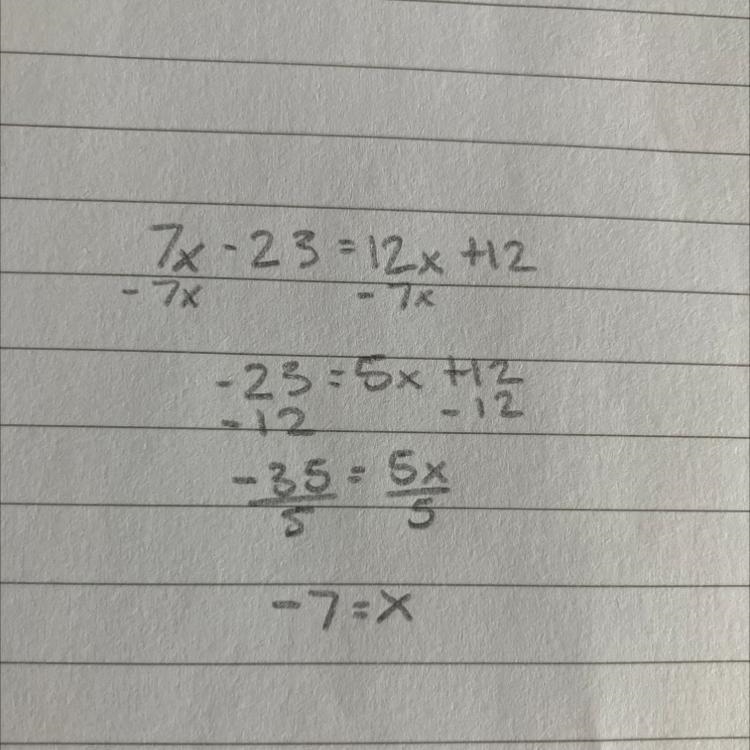 7x - 23 = 12x + 12
- 7x - 7x
-23 = 5x + 12
-12 - 12
-35 = 5x
5 5
-7 = x